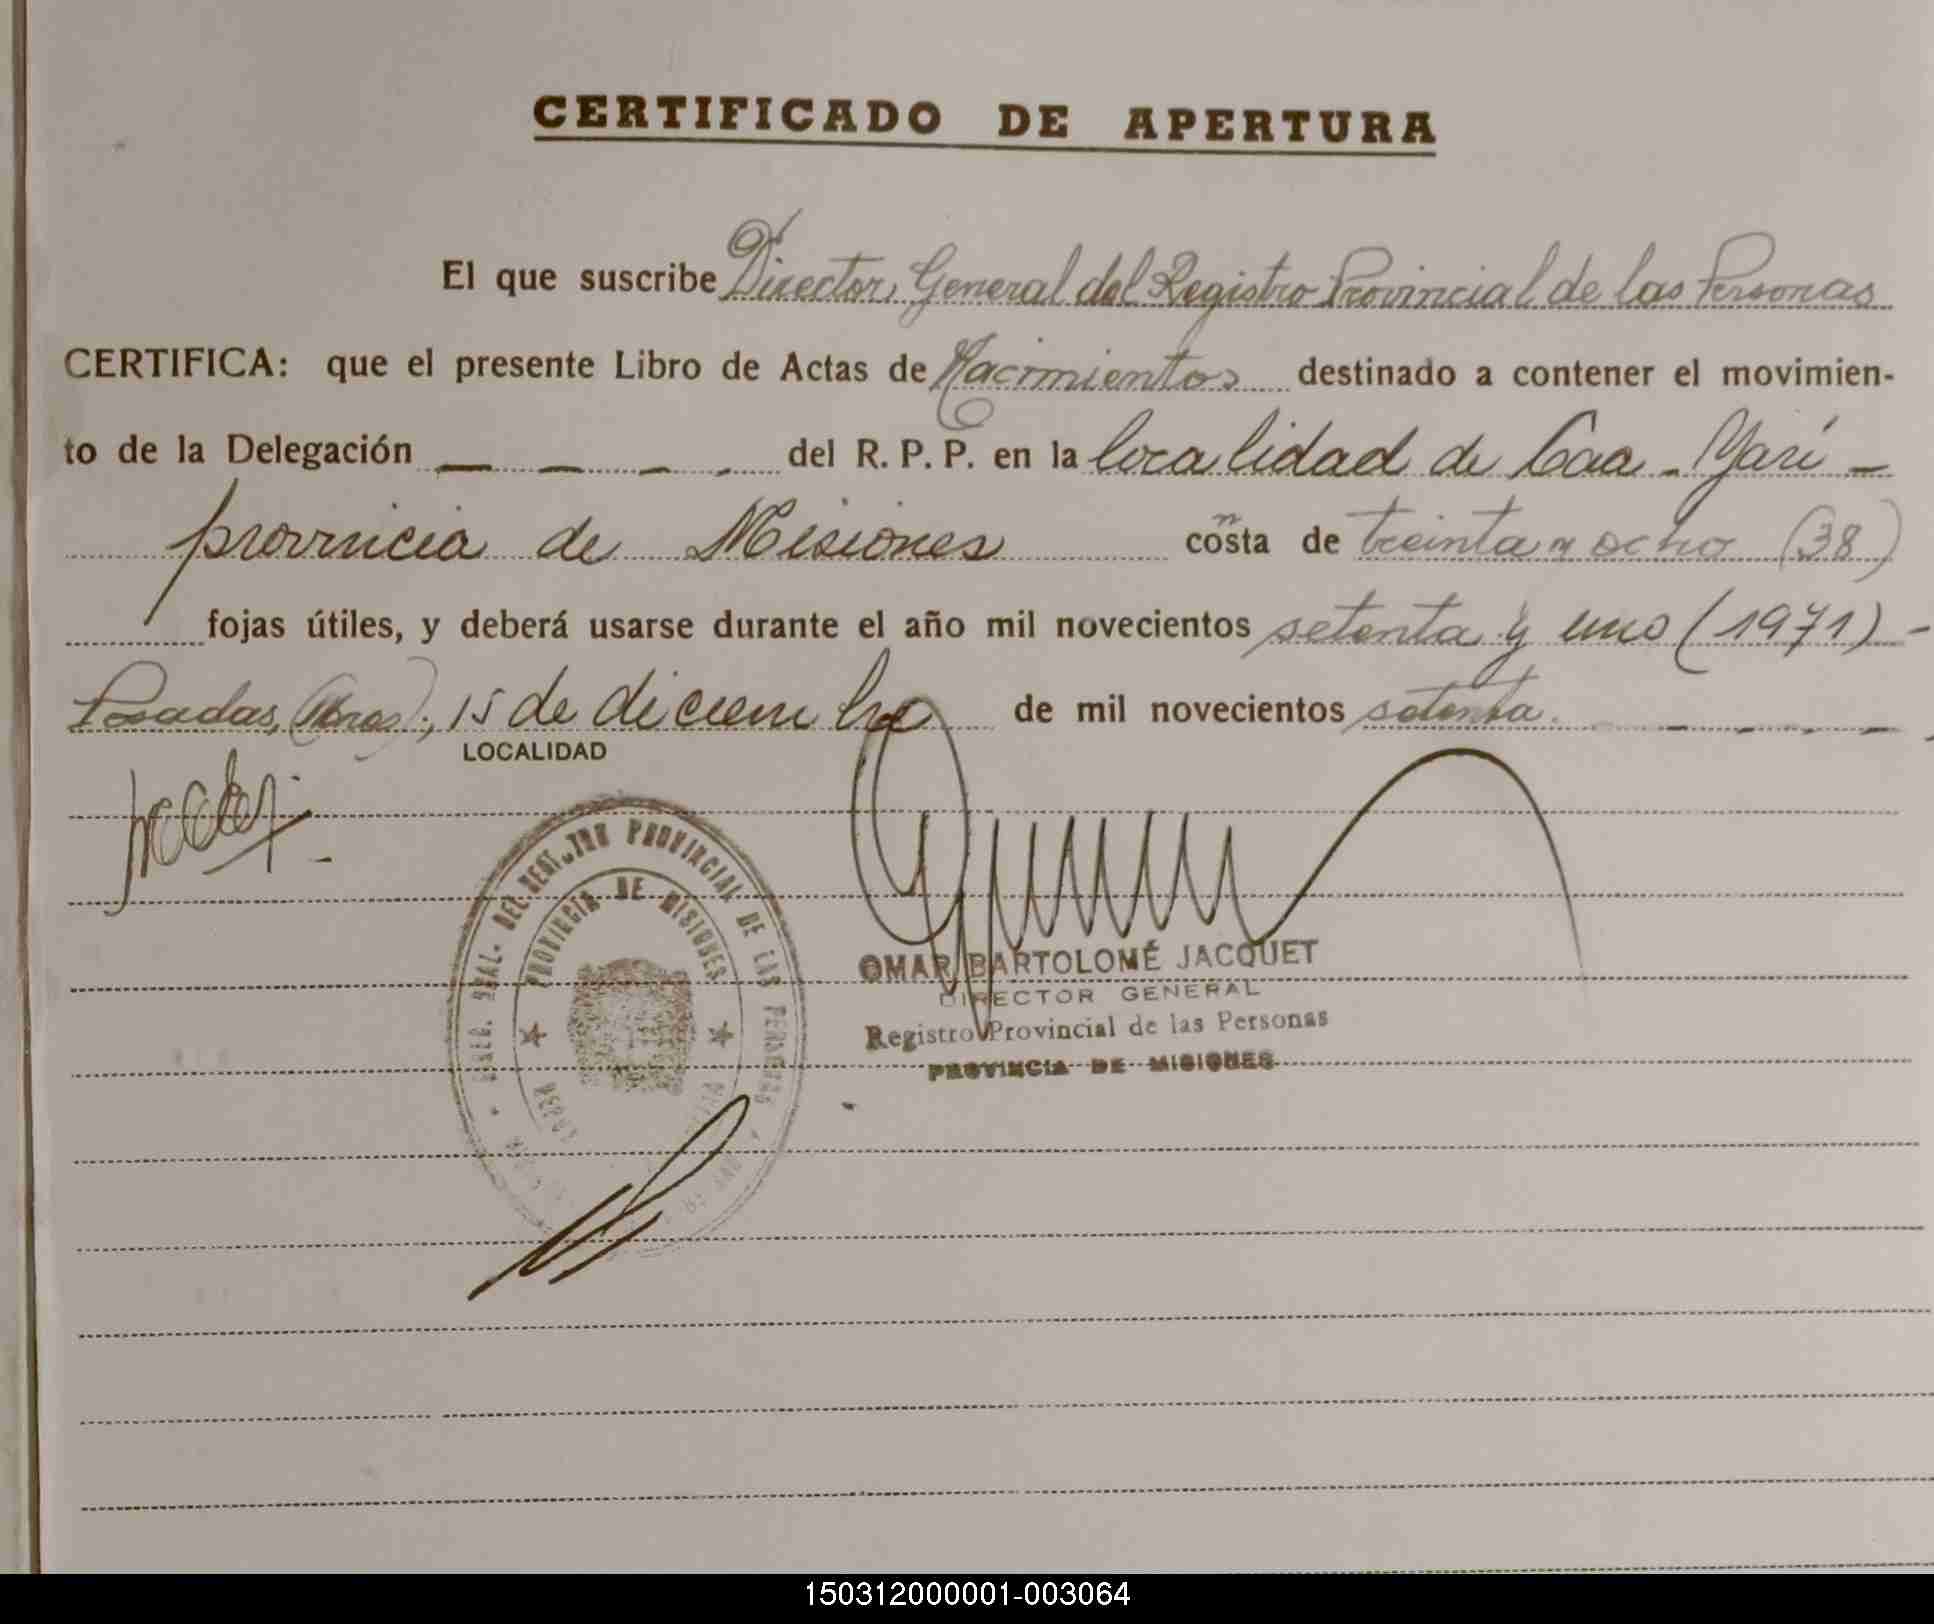 CERTIFICADO DE APERTURA
El que suscribe Director General del Registro Provincial de las Personas
CERTIFICA: que el presente Libro de Actas de Nacimientos destinado a contener el movimien-
to de la Delegación — — — - del R. P. P. en la localidad de Caa - Yarí -
provincia de Misiones consta de treinta y ocho (38)
fojas útiles, y deberá usarse durante el año mil novecientos setenta y uno (1971) -
Posadas, (Mnes), 15 de diciembre de mil novecientos setenta.
LOCALIDAD
DEL REGISTRO PROVINCIAL DE LAS PERSONAS
PROVINCIA DE MISIONES
OMAR BARTOLOMÉ JACQUET
DIRECTOR GENERAL
Registro Provincial de las Personas
PROVINCIA DE MISIONES
150312000001-003064